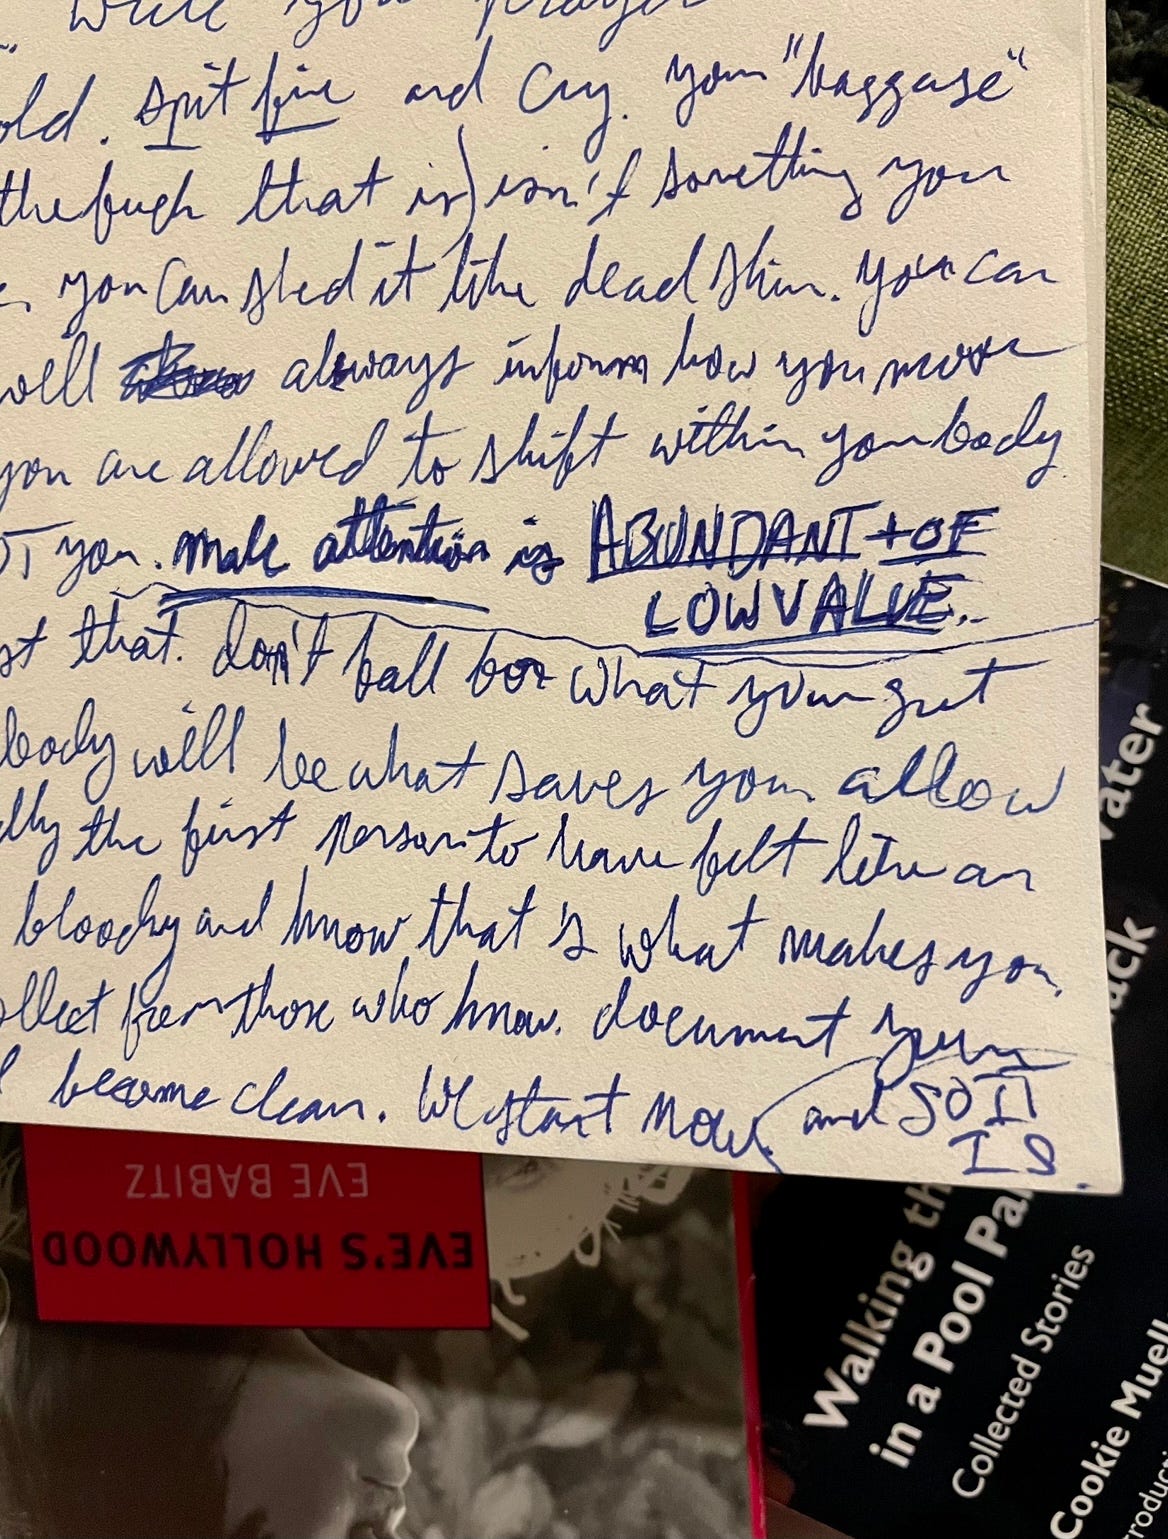 write your prayer
old. spit fire and cry. your "baggage"
the fuck that is) isn't something you
you can shed it like dead skin. you can
will always inform how you move
you are allowed to shift within your body.
OT you. male attention is ABUNDANT + OF
LOW VALUE..
st that. don't fall for what your gut
body will be what saves you. allow
lly the first person to have felt like an
bloody and know that's what makes you.
ollect from those who know. document your
become clean. We start now. and SO IT
IS.
EVE BABITZ
EVE'S HOLLYWOOD
Walking th
vater
in a Pool Pa
ack
Collected Stories
Cookie Muell
roducti